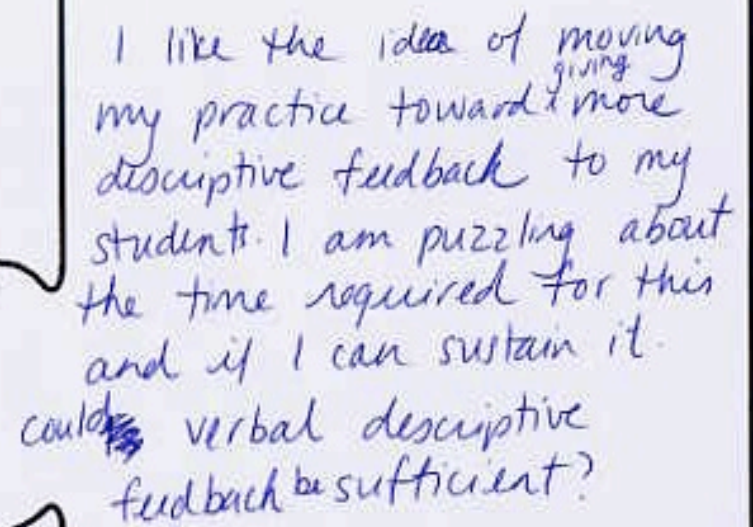 I like the idea of moving
my practice toward giving more
descriptive feedback to my
students. I am puzzling about
the time required for this
and if I can sustain it.
could verbal descriptive
feedback be sufficient?